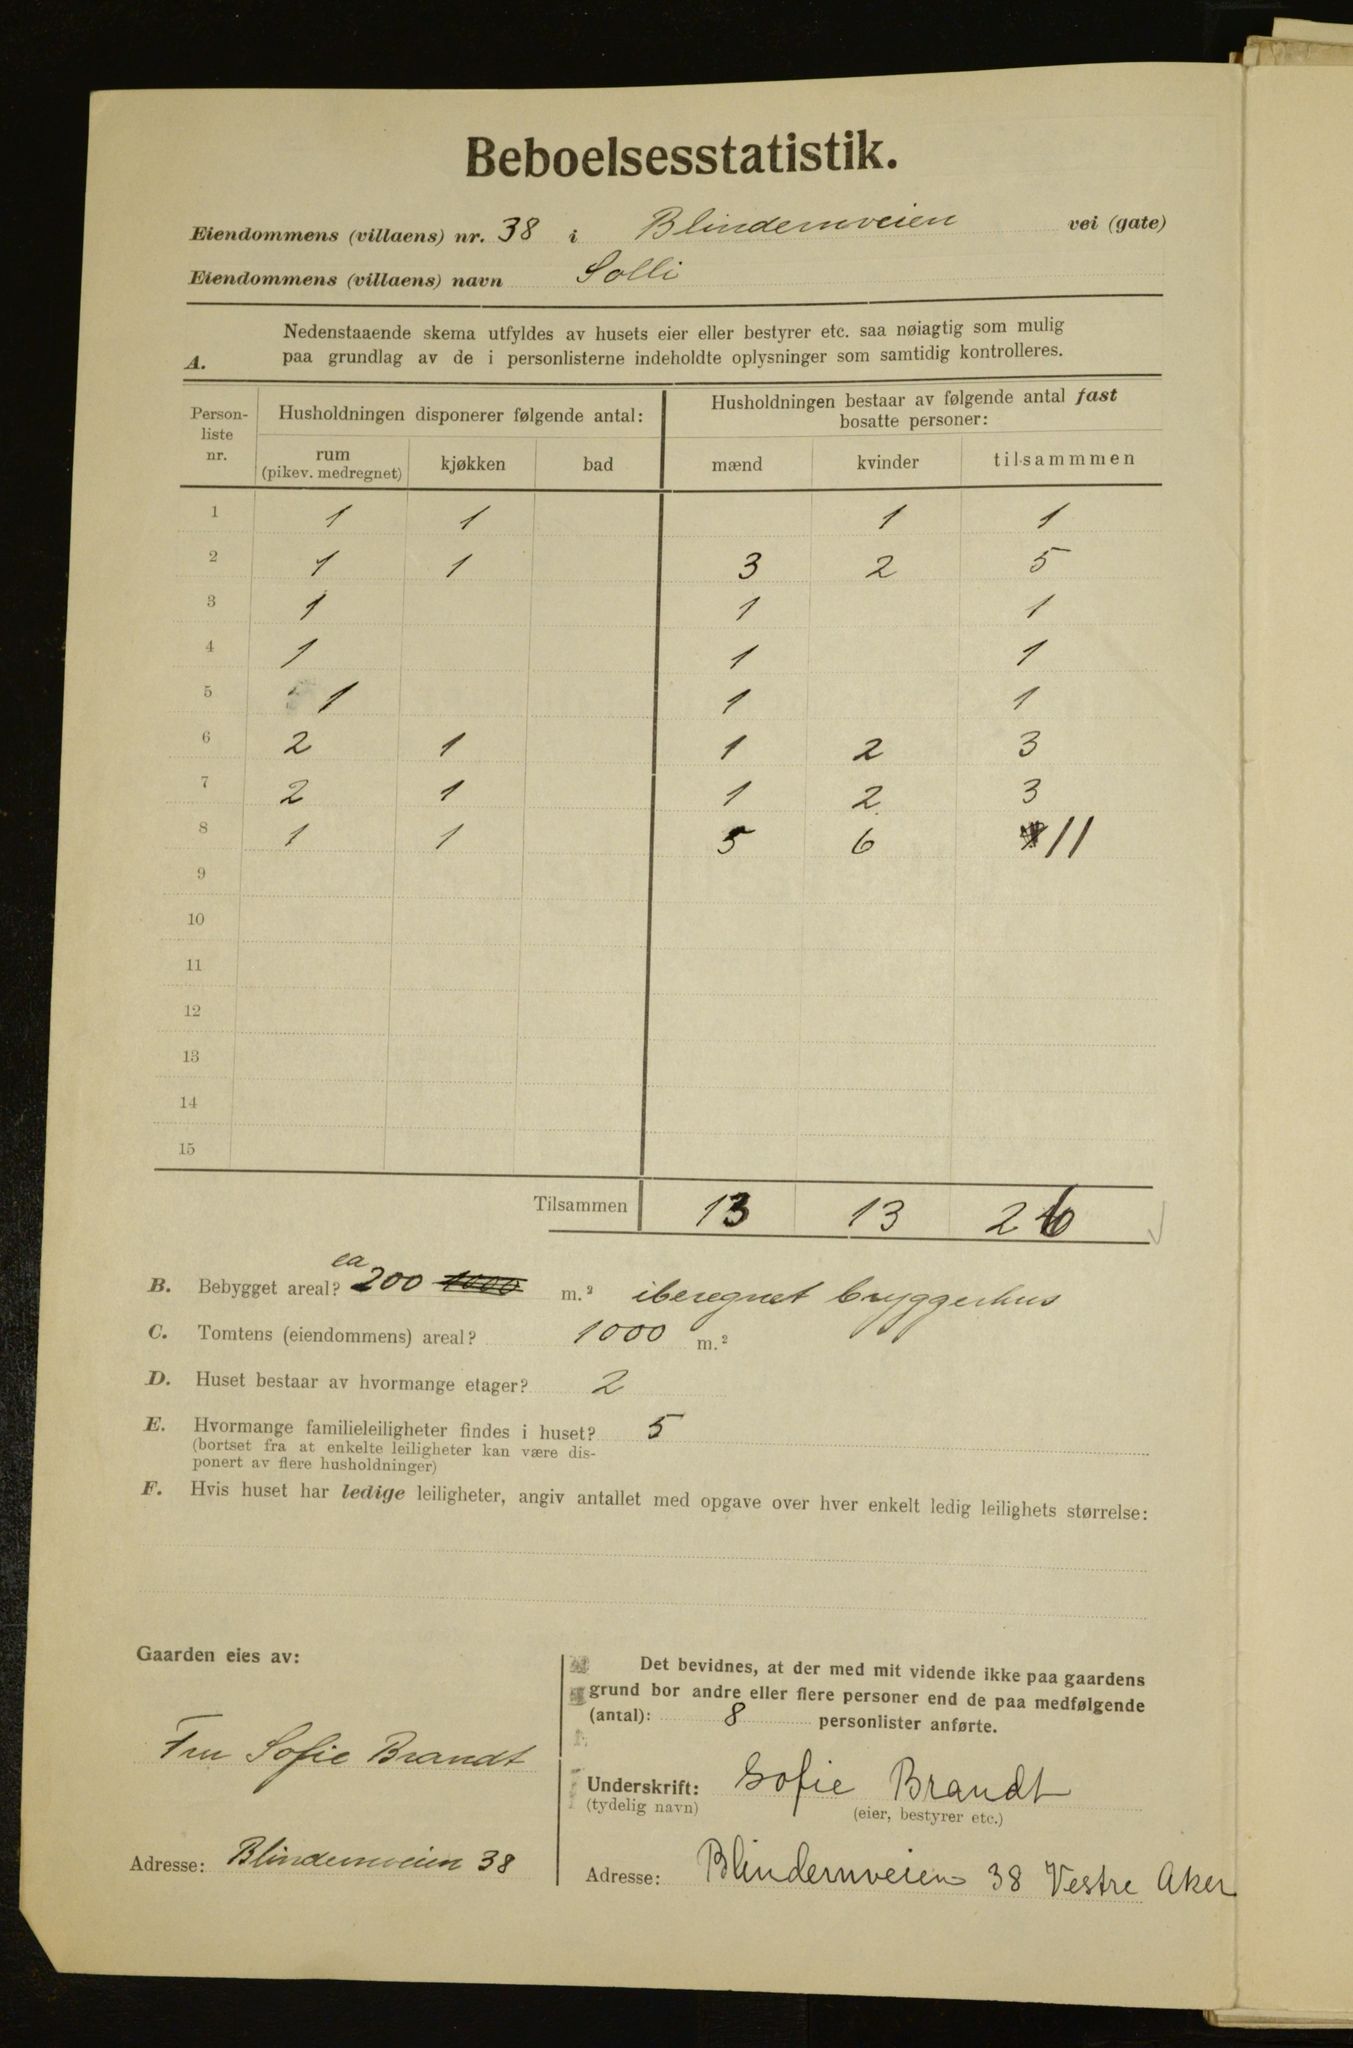 Beboelsesstatistik.
Eiendommens (villaens) nr. 38 i Blindernveien vei (gate)
Eiendommens (villaens) navn Solli
A. Nedenstaaende skema utfyldes av husets eier eller bestyrer etc. saa nøiagtig som mulig
paa grundlag av de i personlisterne indeholdte oplysninger som samtidig kontrolleres.
Person-liste nr. Husholdningen disponerer følgende antal: Husholdningen bestaar av følgende antal fast bosatte personer:
rum (pikev. medregnet) kjøkken bad mænd kvinder tilsammmen
1 1 1 1 1
2 1 1 3 2 5
3 1 1 1
4 1 1 1
5 1 1 1
6 2 1 1 2 3
7 2 1 1 2 3
8 1 1 5 6 11
9
10
11
12
13
14
15
Tilsammen 13 13 26
B. Bebygget areal? ca 200 1000 m.² iberegnet bryggerhus
C. Tomtens (eiendommens) areal? 1000 m.²
D. Huset bestaar av hvormange etager? 2
E. Hvormange familieleiligheter findes i huset? 5
(bortset fra at enkelte leiligheter kan være dis-
ponert av flere husholdninger)
F. Hvis huset har ledige leiligheter, angiv antallet med opgave over hver enkelt ledig leilighets størrelse:
Gaarden eies av:
Fru Sofie Brandt
Adresse: Blindernveien 38
Det bevidnes, at der med mit vidende ikke paa gaardens
grund bor andre eller flere personer end de paa medfølgende
(antal): 8 personlister anførte.
Underskrift: Sofie Brandt
(tydelig navn) (eier, bestyrer etc.)
Adresse: Blindernveien 38 Vestre Aker